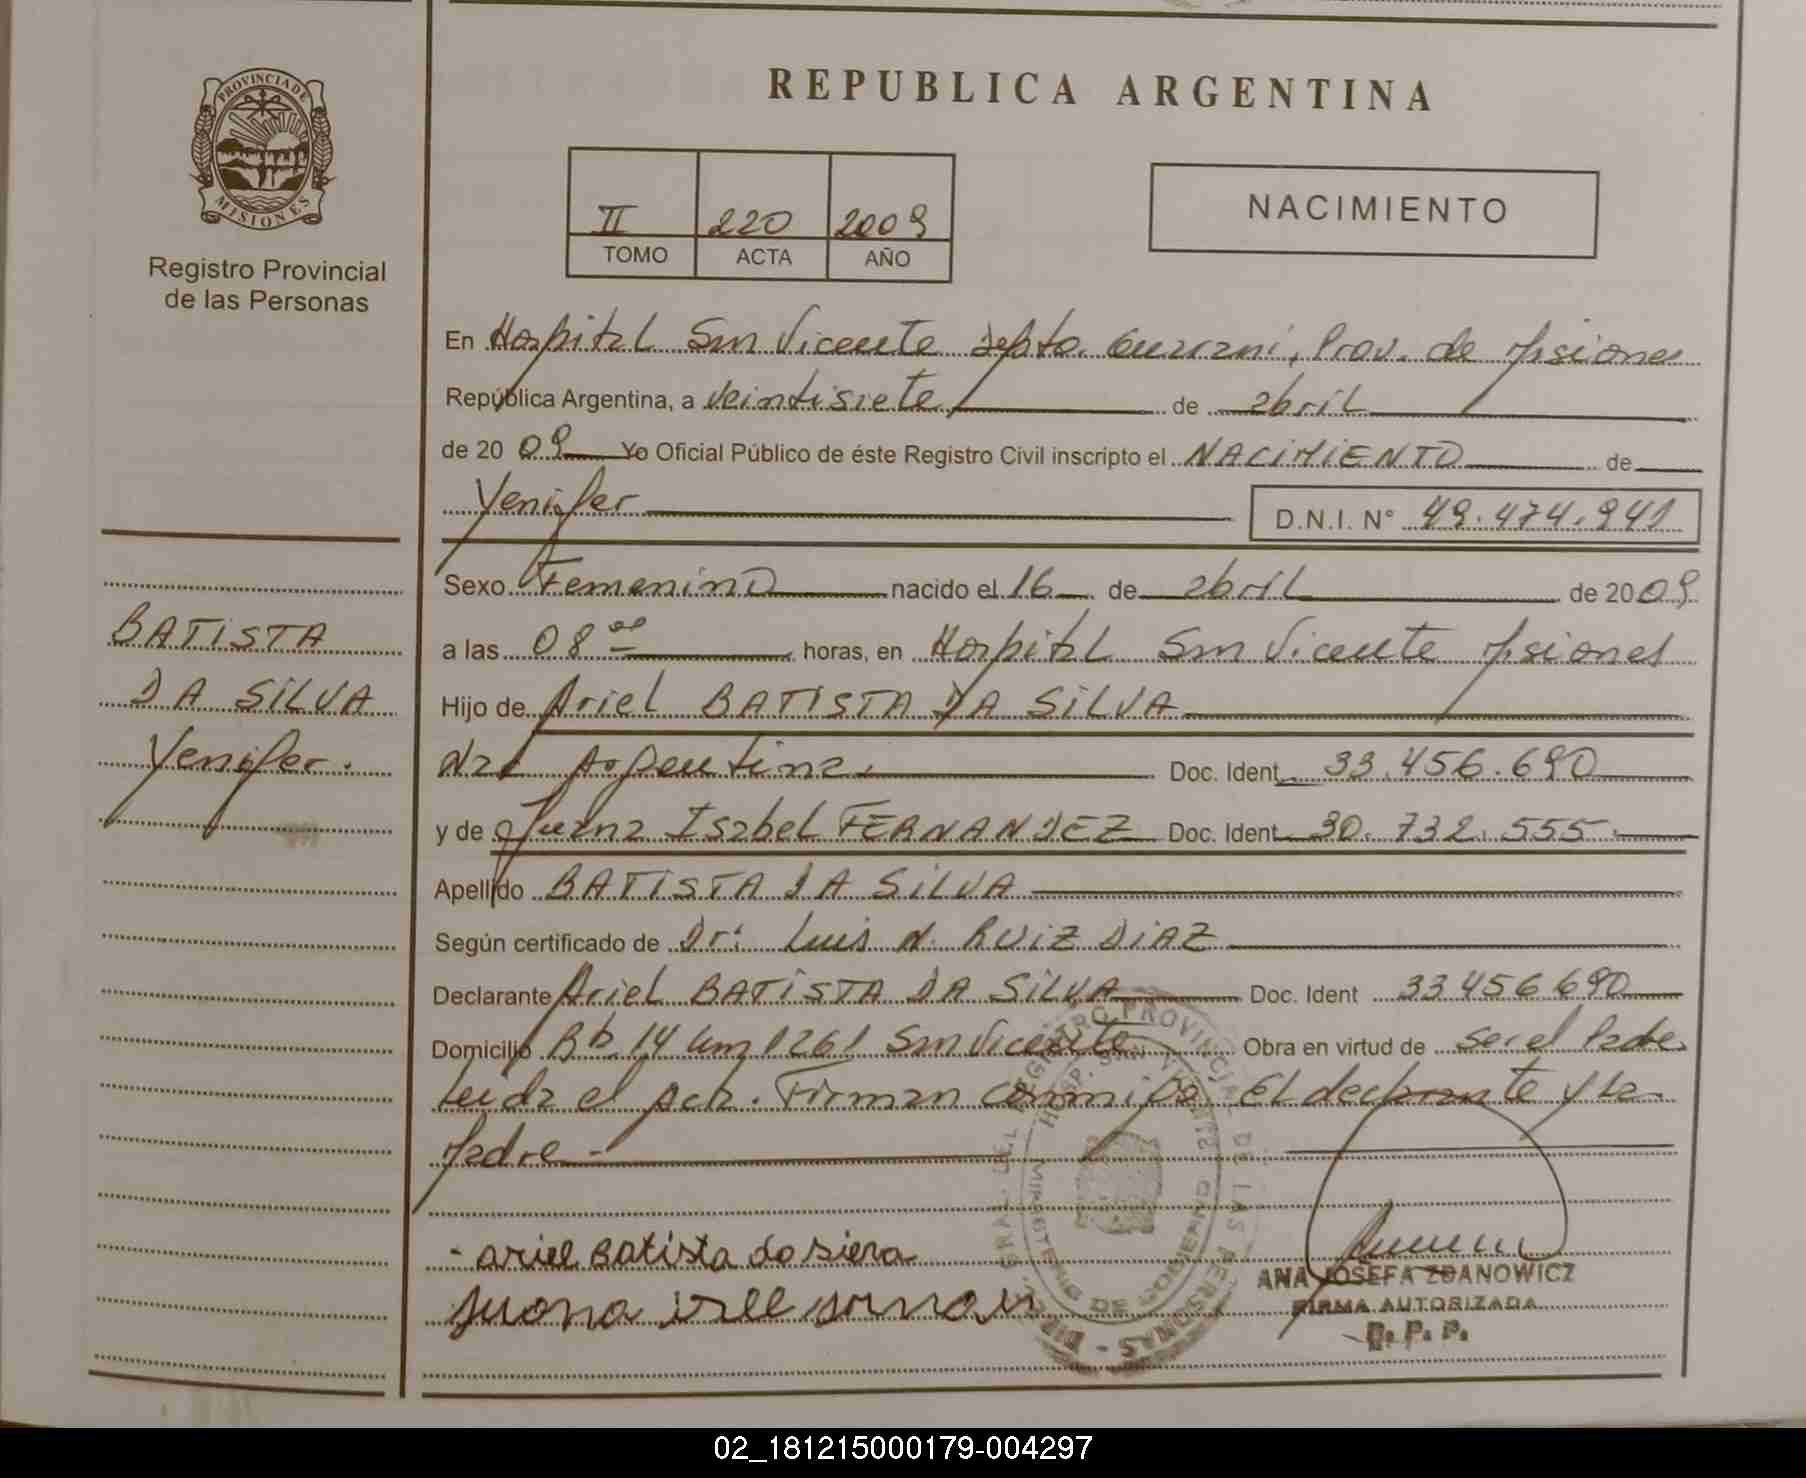 REPUBLICA ARGENTINA
PROVINCIA DE
MISIONES
Registro Provincial
de las Personas
II 220 2009
TOMO ACTA AÑO
NACIMIENTO
En Hospital San Vicente Depto. Guarani, Prov. de Misiones
República Argentina, a veintisiete de abril
de 2009 Yo Oficial Público de éste Registro Civil inscripto el NACIMIENTO de
Yenifer D.N.I. N° 49.474.941
Sexo Femenino nacido el 16 de abril de 2009
a las 08 00 horas, en Hospital San Vicente Misiones
Hijo de Ariel BATISTA DA SILVA
Nac Argentina. Doc. Ident. 33.456.690
y de Juana Isabel FERNANDEZ Doc. Ident. 30.732.555
Apellido BATISTA DA SILVA
Según certificado de Dr: Luis N. RUIZ DIAZ
Declarante Ariel BATISTA DA SILVA Doc. Ident 33456690
Domicilio Rb. 14 km 1261 San Vicente Obra en virtud de ser el Padre
Leida el acta. Firman conmigo El declarante y la
Madre -
BATISTA
DA SILVA
Yenifer.
- ariel Batista da siera
juana
ANA JOSEFA ZDANOWICZ
FIRMA AUTORIZADA
R. P. P.
REGISTRO PROVINCIAL DE LAS PERSONAS
HOSP. SAN VICENTE
MINISTERIO DE GOBIERNO
02_181215000179-004297